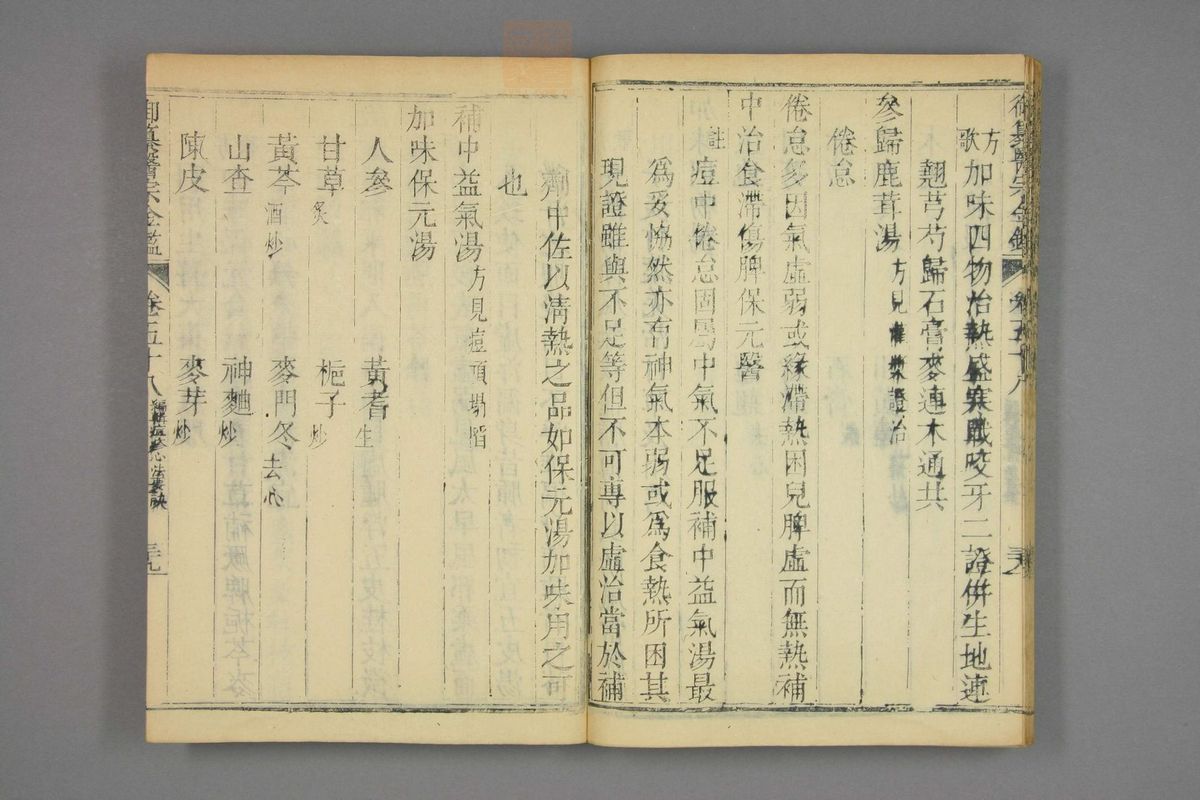 方歌 加味四物治熱盛寒戰咬牙二證併生地連
翹芎芍歸石膏麥連木通共
參歸鹿茸湯 方見寒戰證治
倦怠
倦怠多因氣虛弱或緣滯熱困兒脾虛而無熱補
中治食滯傷脾保元醫
註 痘中倦怠固屬中氣不足服補中益氣湯最
爲妥協然亦有神氣本弱或爲食熱所困其
現證雖與不足等但不可專以虛治當於補
劑中佐以清熱之品如保元湯加味用之可
也
補中益氣湯 方見痘頂塌陷
加味保元湯
人參 黃耆 生
甘草 炙 梔子 炒
黃芩 酒炒 麥門冬 去心
山查 神麯 炒
陳皮 麥芽 炒
御纂醫宗金鑑 卷五十八 編輯痘疹心法要訣 三十九